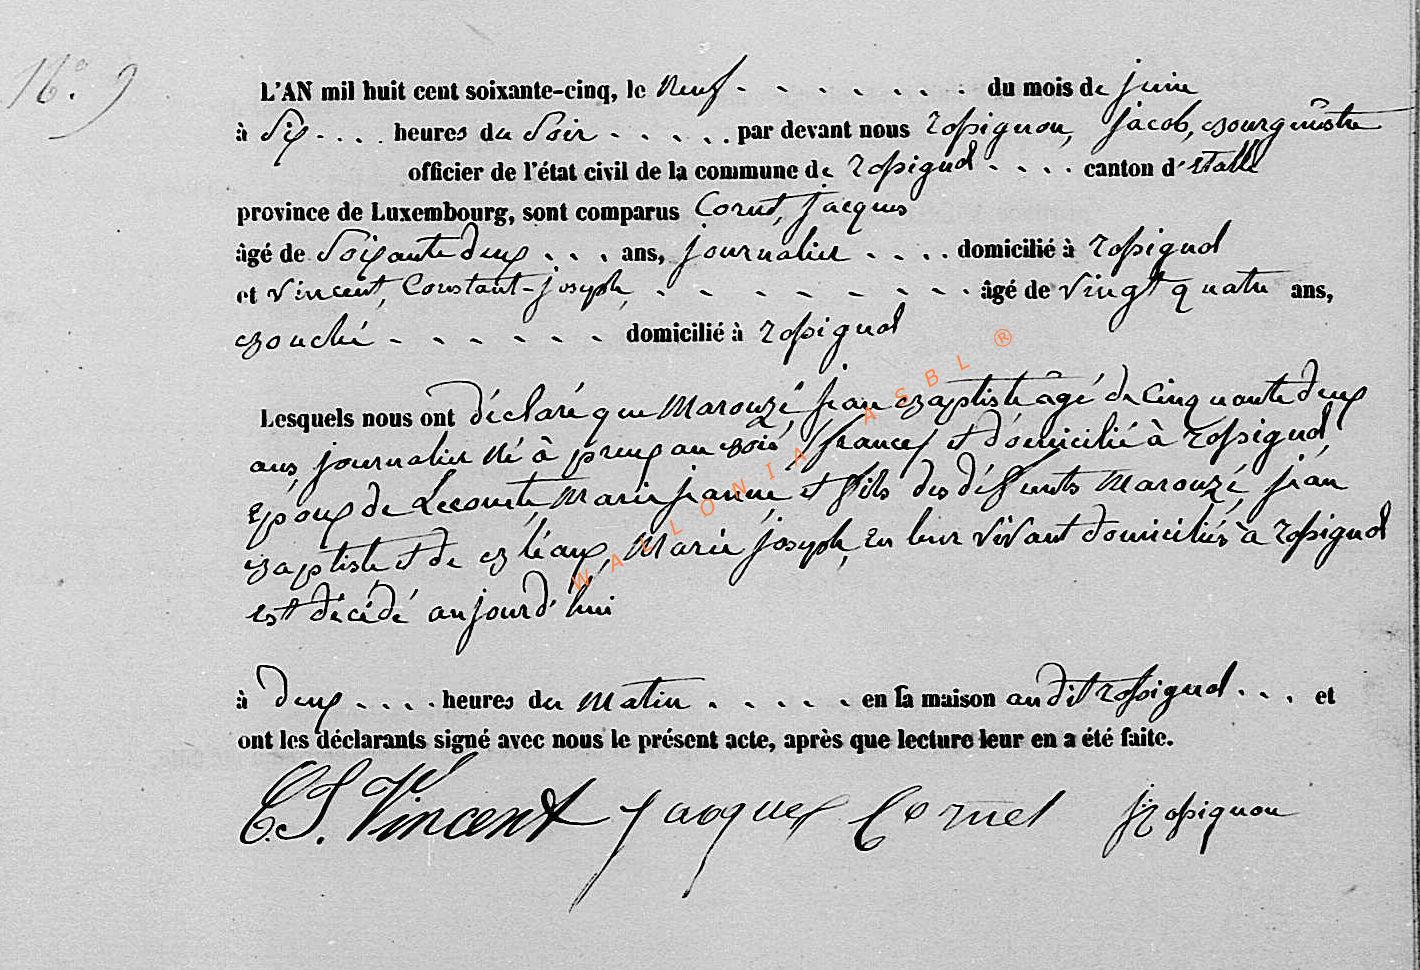 N°. 9
L'AN mil huit cent soixante-cinq, le neuf du mois de juin
à six heures du soir par devant nous rossignon, jacob, bourgmestre
officier de l'état civil de la commune de rossignol canton d'etalle
province de Luxembourg, sont comparus Cornet, jacques
âgé de soixante deux ans, journalier domicilié à rossignol
et vincent, Constant-joseph, âgé de vingt quatre ans,
domicilié à rossignol
Lesquels nous ont déclaré que Marouzé, jean baptiste âgé de cinquante deux
ans, journalier né à preux au bois, /france/ et domicilié à rossignol,
époux de Lecomte, Marie jeanne, et fils des défunts Marouzé, jean
baptiste et de Marie joseph, en leur vivant domiciliés à rossignol
est décédé aujourd'hui
à deux heures du matin en sa maison audit rossignol et
ont les déclarants signé avec nous le présent acte, après que lecture leur en a été faite.
C.J. Vincent jacques Cornet jrossignon
WALLONIA ASBL ®